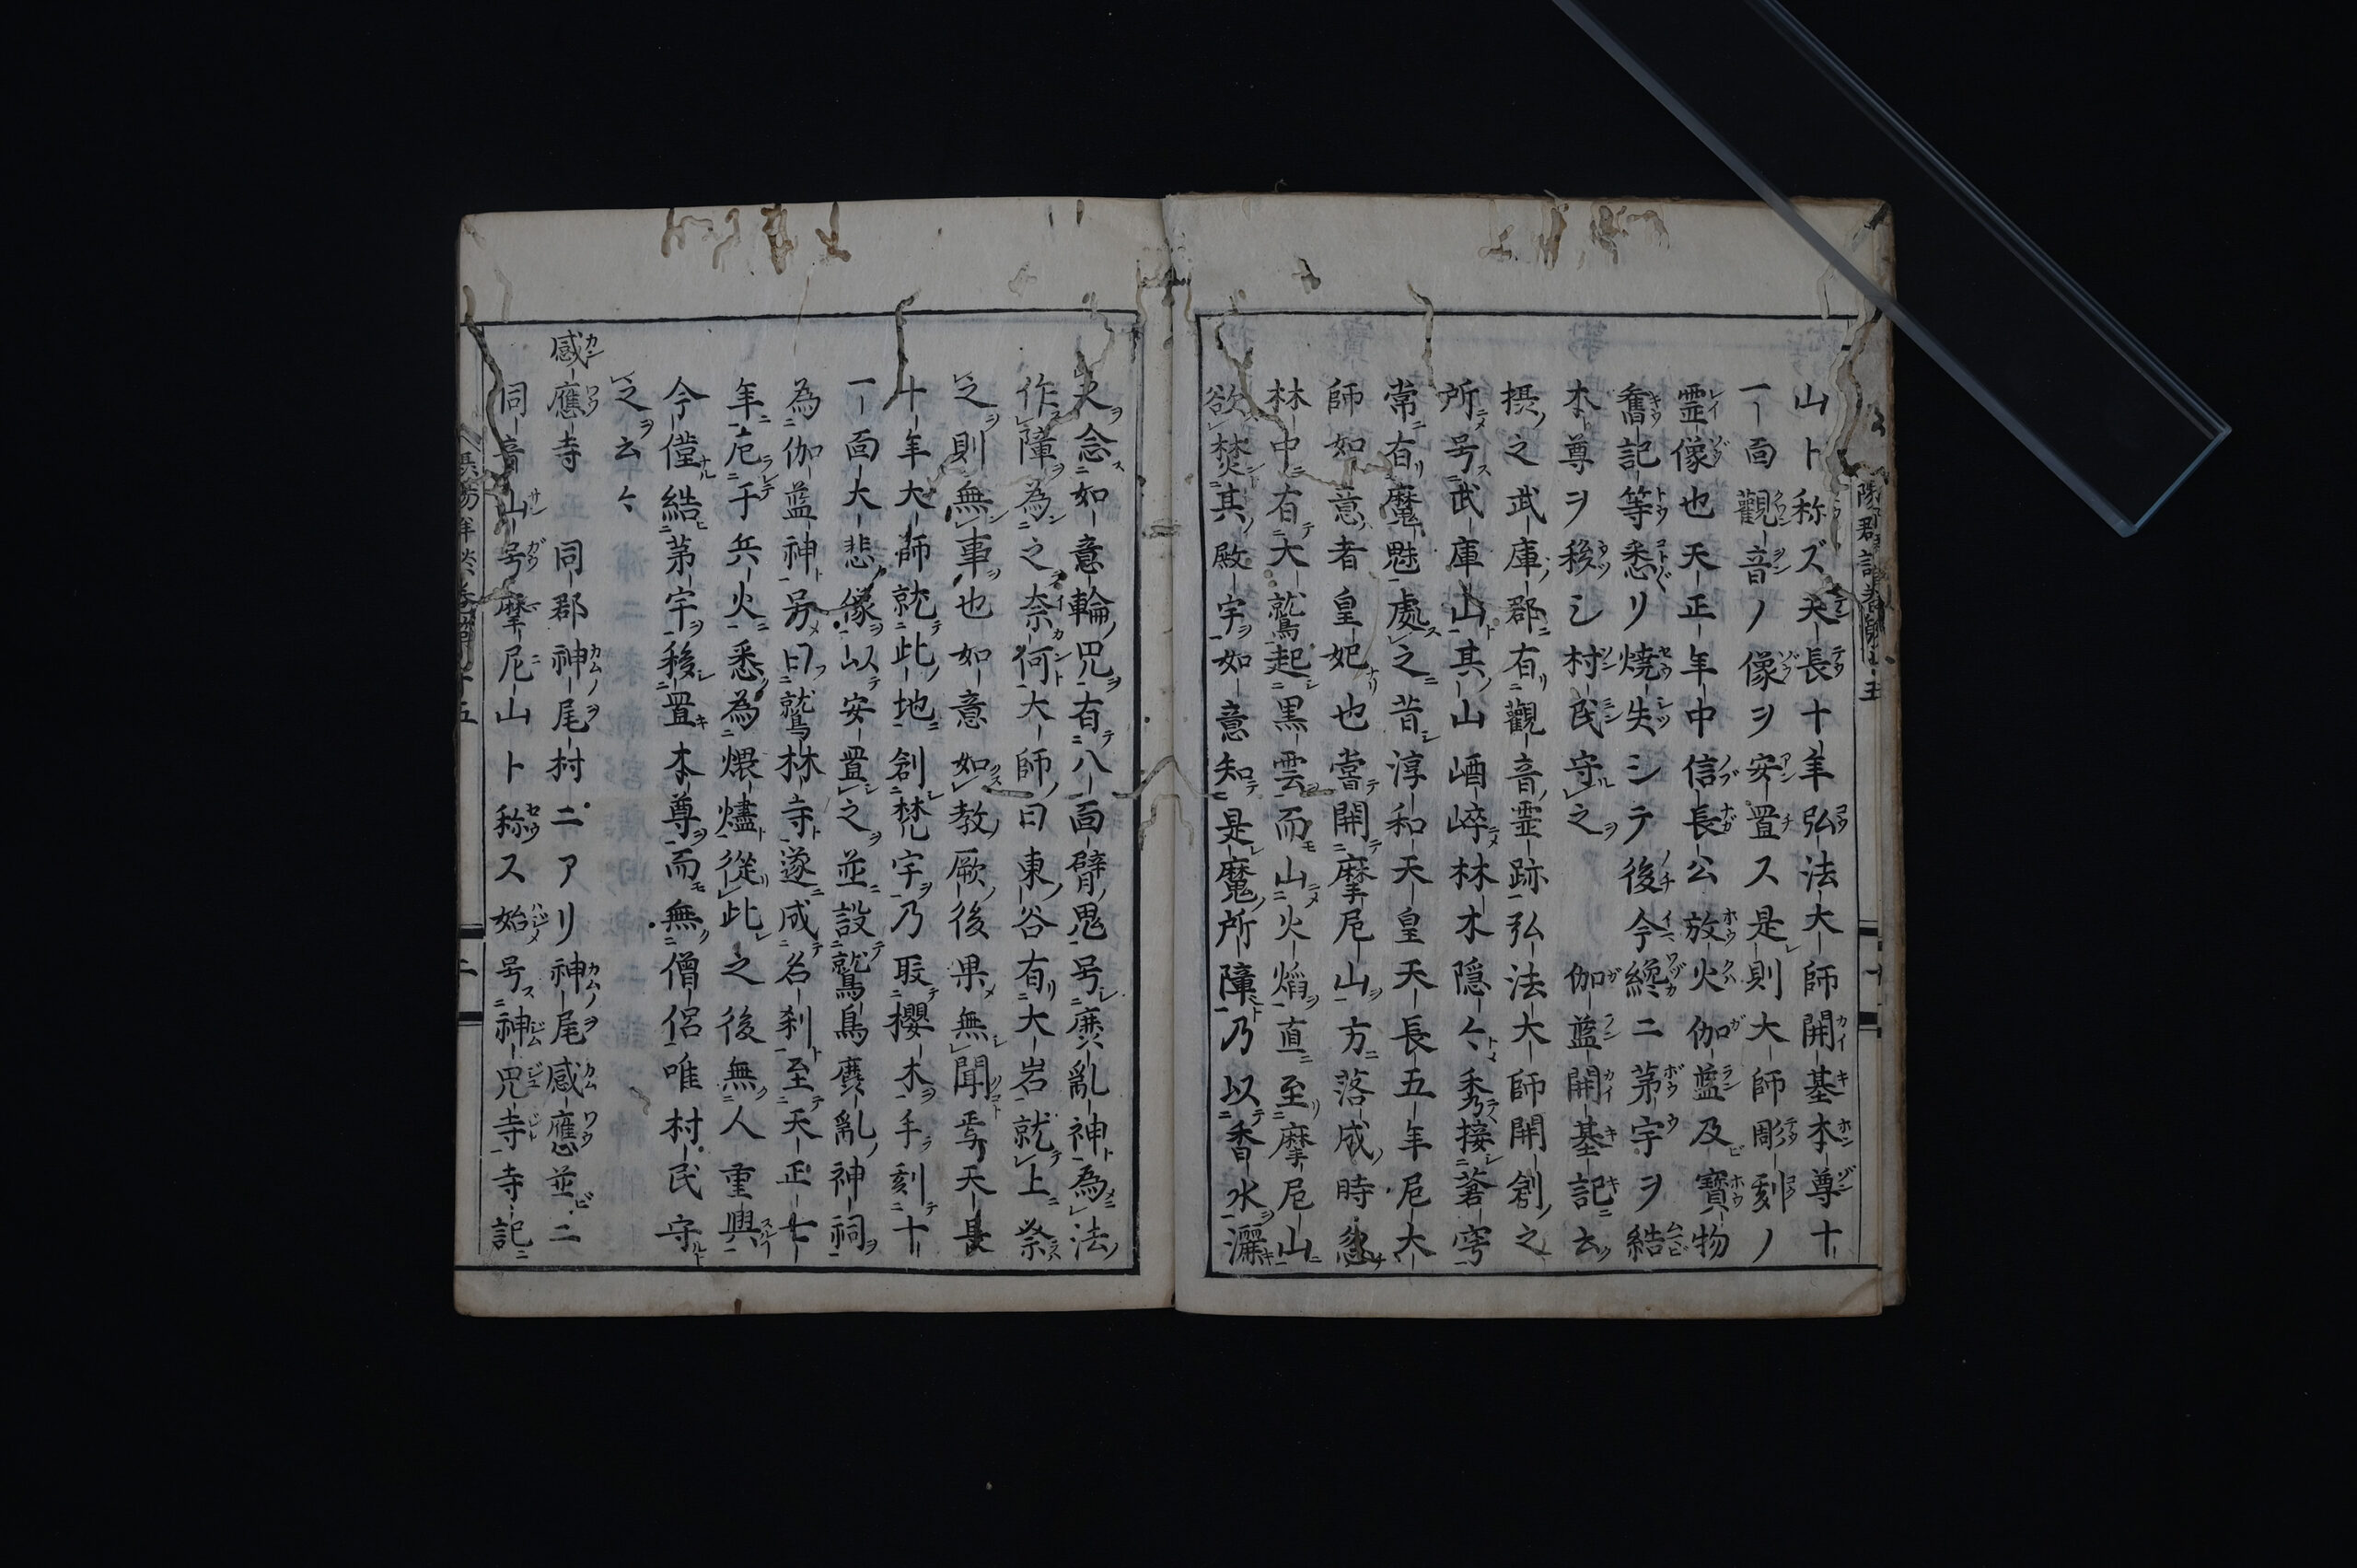 山ト称ズ天長十年弘法大師開基本尊十
一面觀音ノ像ヲ安置ス是則大師彫刻ノ
霊像也天正年中信長公放火伽藍及寶物
舊記等悉リ焼失シテ後今纔ニ茅宇ヲ結
本尊ヲ移シ村民守之　伽藍開基記云
摂之武庫郡有觀音霊跡弘法大師開創之
所号武庫山其山崷崒林木隠々秀接蒼穹
常有魔魅處之昔淳和天皇天長五年尼大
師如意者皇妃也嘗開摩尼山方落成時忽
林中有大鷲起黒雲而山火焔直至摩尼山
欲焚其殿宇如意知是魔所障乃以香水灑
火念如意輪咒有八面臂鬼号麁亂神為法
作障為之奈何大師曰東谷有大岩就上祭
之則無事也如意如教厥後果無聞焉天長
十年大師就此地創梵宇乃取櫻木手刻十
一面大悲像以安置之並設鷲鳥麁亂神祠
為伽藍神号曰鷲林寺遂成名刹至天正七
年厄于兵火悉為煨燼從此之後無人重興
今僅結茅宇移置本尊而無僧侶唯村民守
之云々
感應寺　同郡神尾村ニアリ神尾感應並ニ
同音山号摩尼山ト称ス始号神咒寺寺記